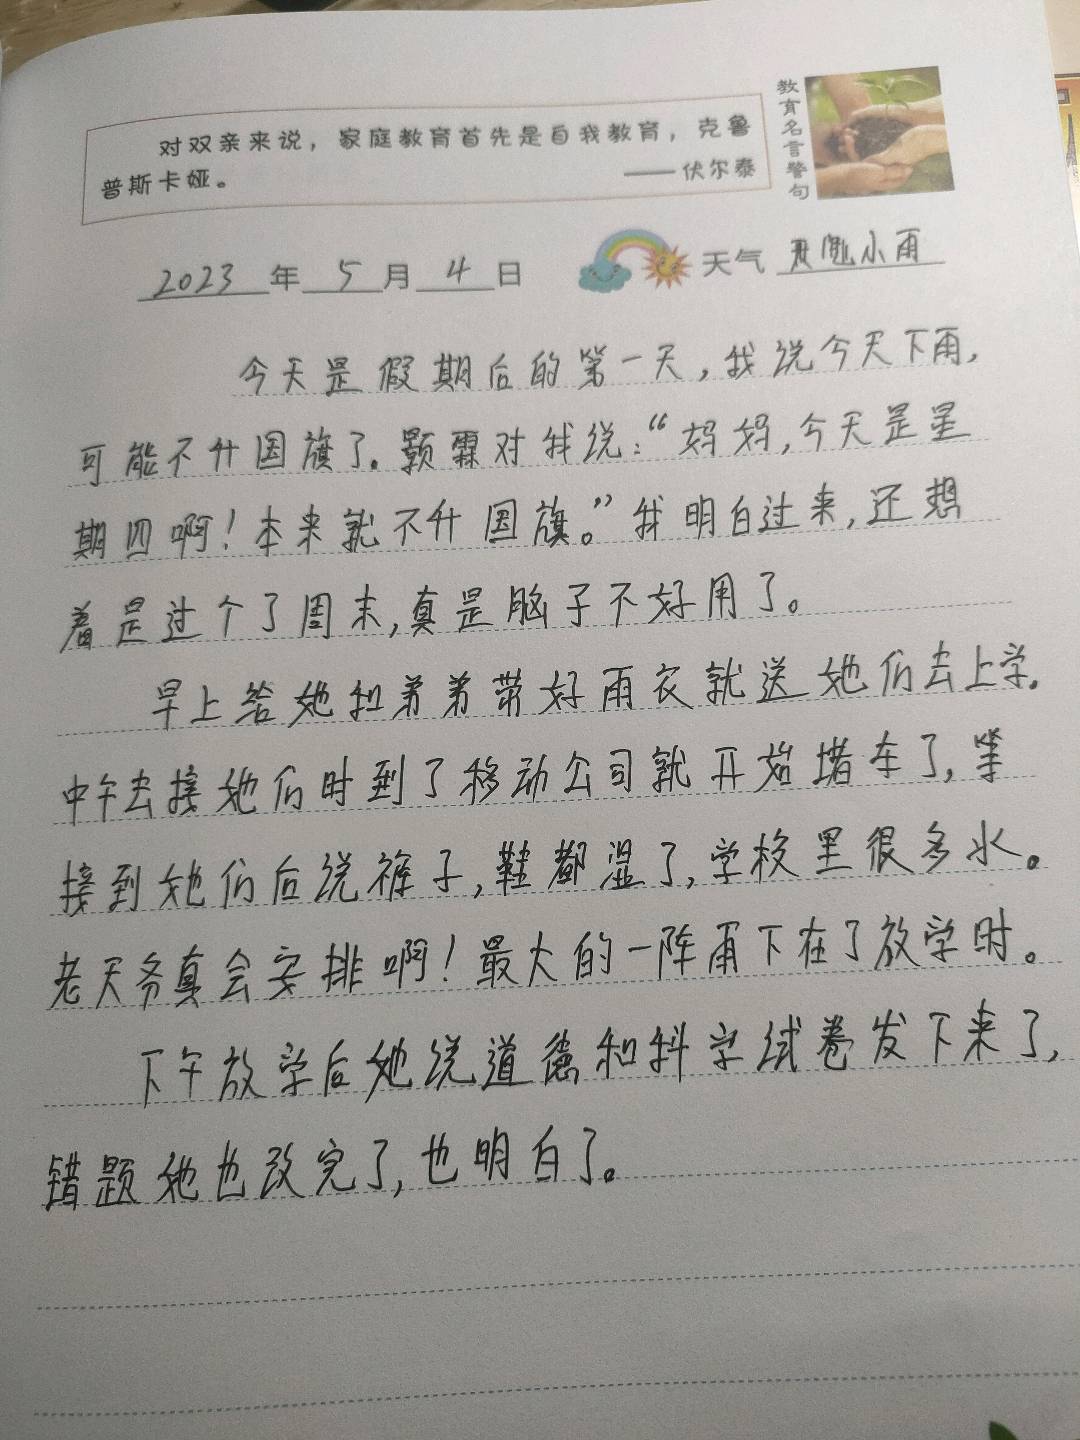 对双亲来说，家庭教育首先是自我教育，克鲁
普斯卡娅。
——伏尔泰
教育名言警句
2023年5月4日
天气 小雨
今天是假期后的第一天，我说今天下雨，
可能不升国旗了。颢霖对我说：“妈妈，今天是星
期四啊！本来就不升国旗。”我明白过来，还想
着是过个了周末，真是脑子不好用了。
早上给她和弟弟带好雨衣就送她们去上学。
中午去接她们时到了移动公司就开始堵车了，等
接到她们后说裤子，鞋都湿了，学校里很多水。
老天爷真会安排啊！最大的一阵雨下在了放学时。
下午放学后她说道德和科学试卷发下来了，
错题她也改完了，也明白了。